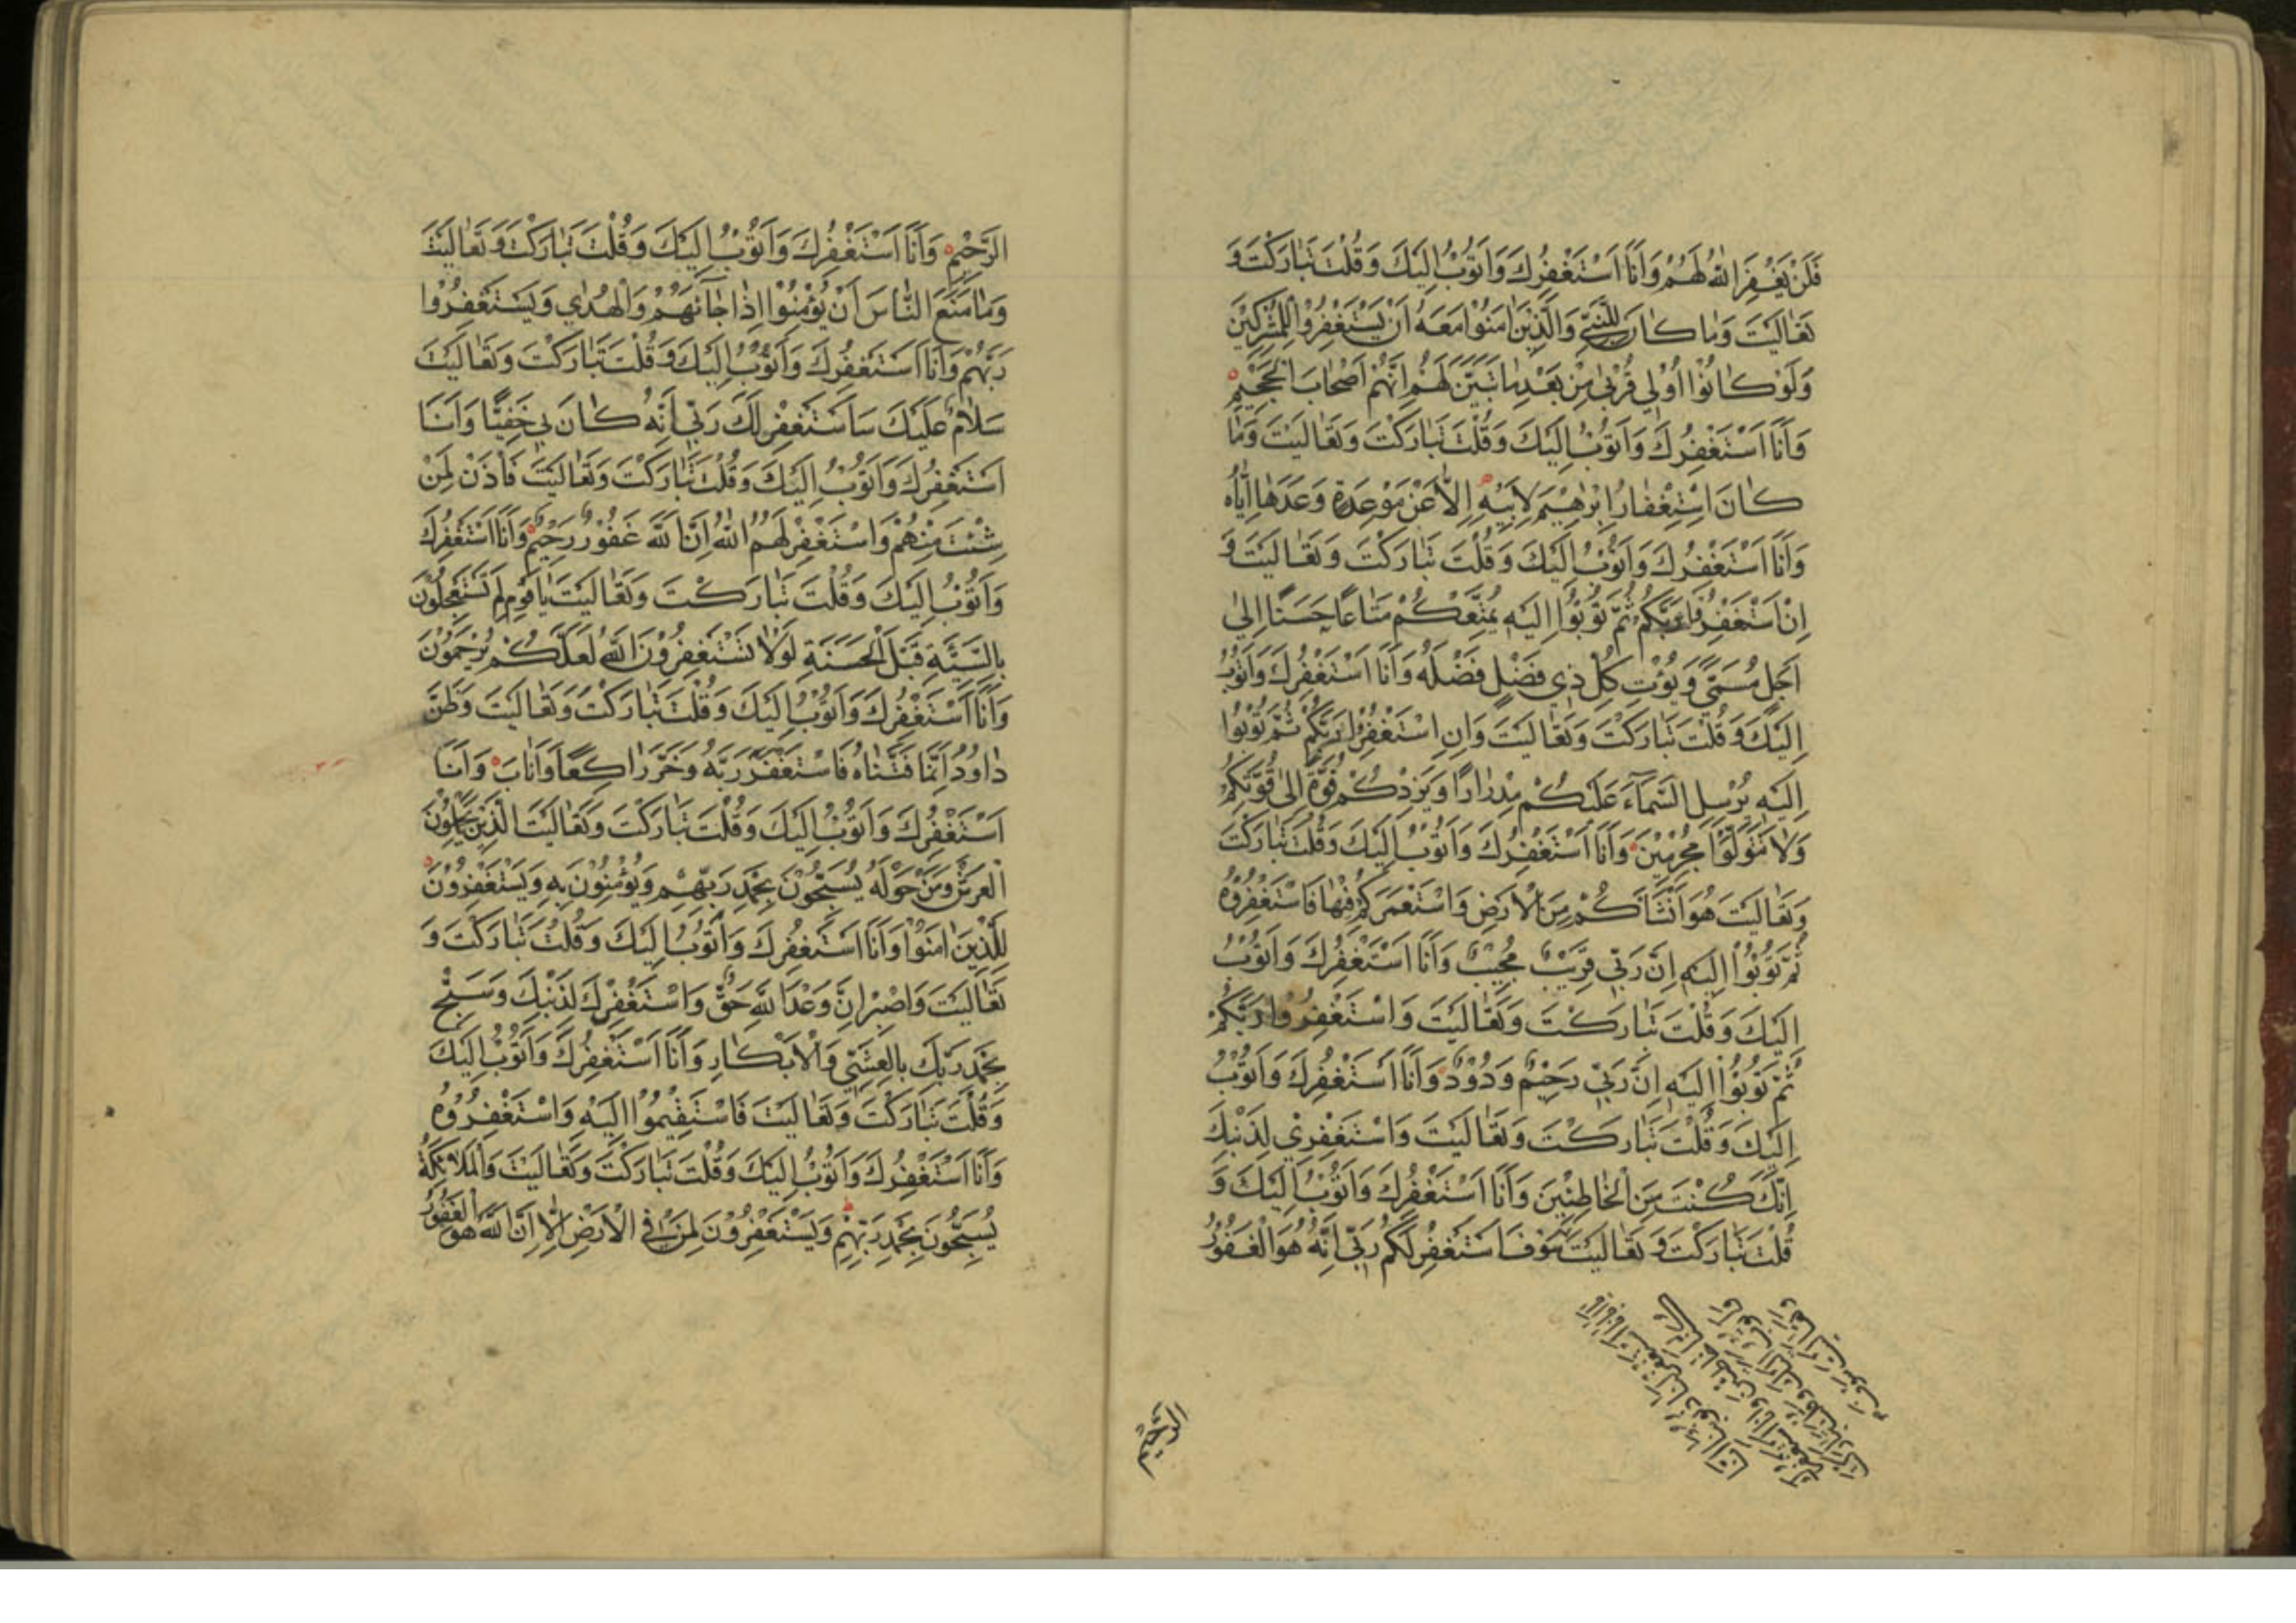 فَلَنْ يَغْفِرَ اللّٰهُ لَهُمْ وَاَنَا اَسْتَغْفِرُكَ وَاَتُوْبُ اِلَيْكَ وَقُلْتَ تَبٰارَكْتَ وَ
تَعٰالَيْتَ وَمٰا كٰانَ لِلنَّبِيِّ وَالَّذِيْنَ اٰمَنُوْا مَعَهُ اَنْ يَسْتَغْفِرُوْا لِلْمُشْرِكِيْنَ
وَلَوْ كٰانُوْا اُوْلِي قُرْبٰى مِنْ بَعْدِ مٰا تَبَيَّنَ لَهُمْ اَنَّهُمْ اَصْحٰابَ الْجَحِيْمِ
وَاَنَا اَسْتَغْفِرُكَ وَاَتُوْبُ اِلَيْكَ وَقُلْتَ تَبٰارَكْتَ وَتَعٰالَيْتَ وَمٰا
كٰانَ اسْتِغْفٰارُ اِبْرٰهِيْمَ لِاَبِيْهِ اِلّٰا عَنْ مَوْعِدَةٍ وَعَدَهٰا اِيّٰاهُ
وَاَنَا اَسْتَغْفِرُكَ وَاَتُوْبُ اِلَيْكَ وَقُلْتَ تَبٰارَكْتَ وَتَعٰالَيْتَ وَ
اِنْ اسْتَغْفِرُوْا رَبَّكُمْ ثُمَّ تُوْبُوْا اِلَيْهِ يُمَتِّعْكُمْ مَتٰاعًا حَسَنًا اِلٰي
اَجَلٍ مُسَمًّي وَيُؤْتِ كُلَّ ذِي فَضْلٍ فَضْلَهُ وَاَنَا اَسْتَغْفِرُكَ وَاَتُوْبُ
اِلَيْكَ وَقُلْتَ تَبٰارَكْتَ وَتَعٰالَيْتَ وَاِنِ اسْتَغْفِرُوْا رَبَّكُمْ ثُمَّ تُوْبُوْا
اِلَيْهِ يُرْسِلِ السَّمٰآءَ عَلَيْكُمْ مِدْرٰارًا وَيَزِدْكُمْ قُوَّةً اِلٰى قُوَّتِكُمْ
وَلٰا تَتَوَلَّوْا مُجْرِمِيْنَ وَاَنَا اَسْتَغْفِرُكَ وَاَتُوْبُ اِلَيْكَ وَقُلْتَ تَبٰارَكْتَ
وَتَعٰالَيْتَ هُوَ اَنْشَاَكُمْ مِنَ الْاَرْضِ وَاسْتَعْمَرَكُمْ فِيْهٰا فَاسْتَغْفِرُوْهُ
ثُمَّ تُوْبُوْا اِلَيْهِ اِنَّ رَبِّي قَرِيْبٌ مُجِيْبٌ وَاَنَا اَسْتَغْفِرُكَ وَاَتُوْبُ
اِلَيْكَ وَقُلْتَ تَبٰارَكْتَ وَتَعٰالَيْتَ وَاسْتَغْفِرُوْا رَبَّكُمْ
ثُمَّ تُوْبُوْا اِلَيْهِ اِنَّ رَبِّي رَحِيْمٌ وَدُوْدٌ وَاَنَا اَسْتَغْفِرُكَ وَاَتُوْبُ
اِلَيْكَ وَقُلْتَ تَبٰارَكْتَ وَتَعٰالَيْتَ وَاسْتَغْفِرِي لِذَنْبِكِ
اِنَّكِ كُنْتِ مِنَ الْخٰاطِئِيْنَ وَاَنَا اَسْتَغْفِرُكَ وَاَتُوْبُ اِلَيْكَ وَ
قُلْتَ تَبٰارَكْتَ وَتَعٰالَيْتَ سَوْفَ اَسْتَغْفِرُ لَكُمْ رَبِّي اِنَّهُ هُوَ الْغَفُوْرُ
الرَّحِيْمُ
الرَّحِيْمُ وَاَنَا اَسْتَغْفِرُكَ وَاَتُوْبُ اِلَيْكَ وَقُلْتَ تَبٰارَكْتَ وَتَعٰالَيْتَ
وَمٰا مَنَعَ النّٰاسَ اَنْ يُؤْمِنُوْا اِذْ جٰآئَهُمْ وَالْهُدٰي وَيَسْتَغْفِرُوْا
رَبَّهُمْ وَاَنَا اَسْتَغْفِرُكَ وَاَتُوْبُ اِلَيْكَ وَقُلْتَ تَبٰارَكْتَ وَتَعٰالَيْتَ
سَلٰامٌ عَلَيْكَ سَاَسْتَغْفِرُ لَكَ رَبِّي اِنَّهُ كٰانَ بِي حَفِيًّا وَاَنَا
اَسْتَغْفِرُكَ وَاَتُوْبُ اِلَيْكَ وَقُلْتَ تَبٰارَكْتَ وَتَعٰالَيْتَ فَاْذَنْ لِمَنْ
شِئْتَ مِنْهُمْ وَاسْتَغْفِرْ لَهُمُ اللّٰهَ اِنَّ اللّٰهَ غَفُوْرٌ رَحِيْمٌ وَاَنَا اَسْتَغْفِرُكَ
وَاَتُوْبُ اِلَيْكَ وَقُلْتَ تَبٰارَكْتَ وَتَعٰالَيْتَ يٰا قَوْمِ لِمَ تَسْتَعْجِلُوْنَ
بِالسَّيِّئَةِ قَبْلَ الْحَسَنَةِ لَوْلٰا تَسْتَغْفِرُوْنَ اللّٰهَ لَعَلَّكُمْ تُرْحَمُوْنَ
وَاَنَا اَسْتَغْفِرُكَ وَاَتُوْبُ اِلَيْكَ وَقُلْتَ تَبٰارَكْتَ وَتَعٰالَيْتَ وَظَنَّ
دٰاوُدُ اَنَّمٰا فَتَنّٰاهُ فَاسْتَغْفَرَ رَبَّهُ وَخَرَّ رٰاكِعًا وَاَنٰابَ وَاَنَا
اَسْتَغْفِرُكَ وَاَتُوْبُ اِلَيْكَ وَقُلْتَ تَبٰارَكْتَ وَتَعٰالَيْتَ الَّذِيْنَ يَحْمِلُوْنَ
الْعَرْشَ وَمَنْ حَوْلَهُ يُسَبِّحُوْنَ بِحَمْدِ رَبِّهِمْ وَيُؤْمِنُوْنَ بِهِ وَيَسْتَغْفِرُوْنَ
لِلَّذِيْنَ اٰمَنُوْا وَاَنَا اَسْتَغْفِرُكَ وَاَتُوْبُ اِلَيْكَ وَقُلْتَ تَبٰارَكْتَ وَ
تَعٰالَيْتَ وَاصْبِرْ اِنَّ وَعْدَ اللّٰهِ حَقٌّ وَاسْتَغْفِرْ لِذَنْبِكَ وَسَبِّحْ
بِحَمْدِ رَبِّكَ بِالْعَشِيِّ وَالْاِبْكٰارِ وَاَنَا اَسْتَغْفِرُكَ وَاَتُوْبُ اِلَيْكَ
وَقُلْتَ تَبٰارَكْتَ وَتَعٰالَيْتَ فَاسْتَقِيْمُوْا اِلَيْهِ وَاسْتَغْفِرُوْهُ
وَاَنَا اَسْتَغْفِرُكَ وَاَتُوْبُ اِلَيْكَ وَقُلْتَ تَبٰارَكْتَ وَتَعٰالَيْتَ وَالْمَلٰائِكَةُ
يُسَبِّحُوْنَ بِحَمْدِ رَبِّهِمْ وَيَسْتَغْفِرُوْنَ لِمَنْ فِي الْاَرْضِ اَلٰا اِنَّ اللّٰهَ هُوَ الْغَفُوْرُ